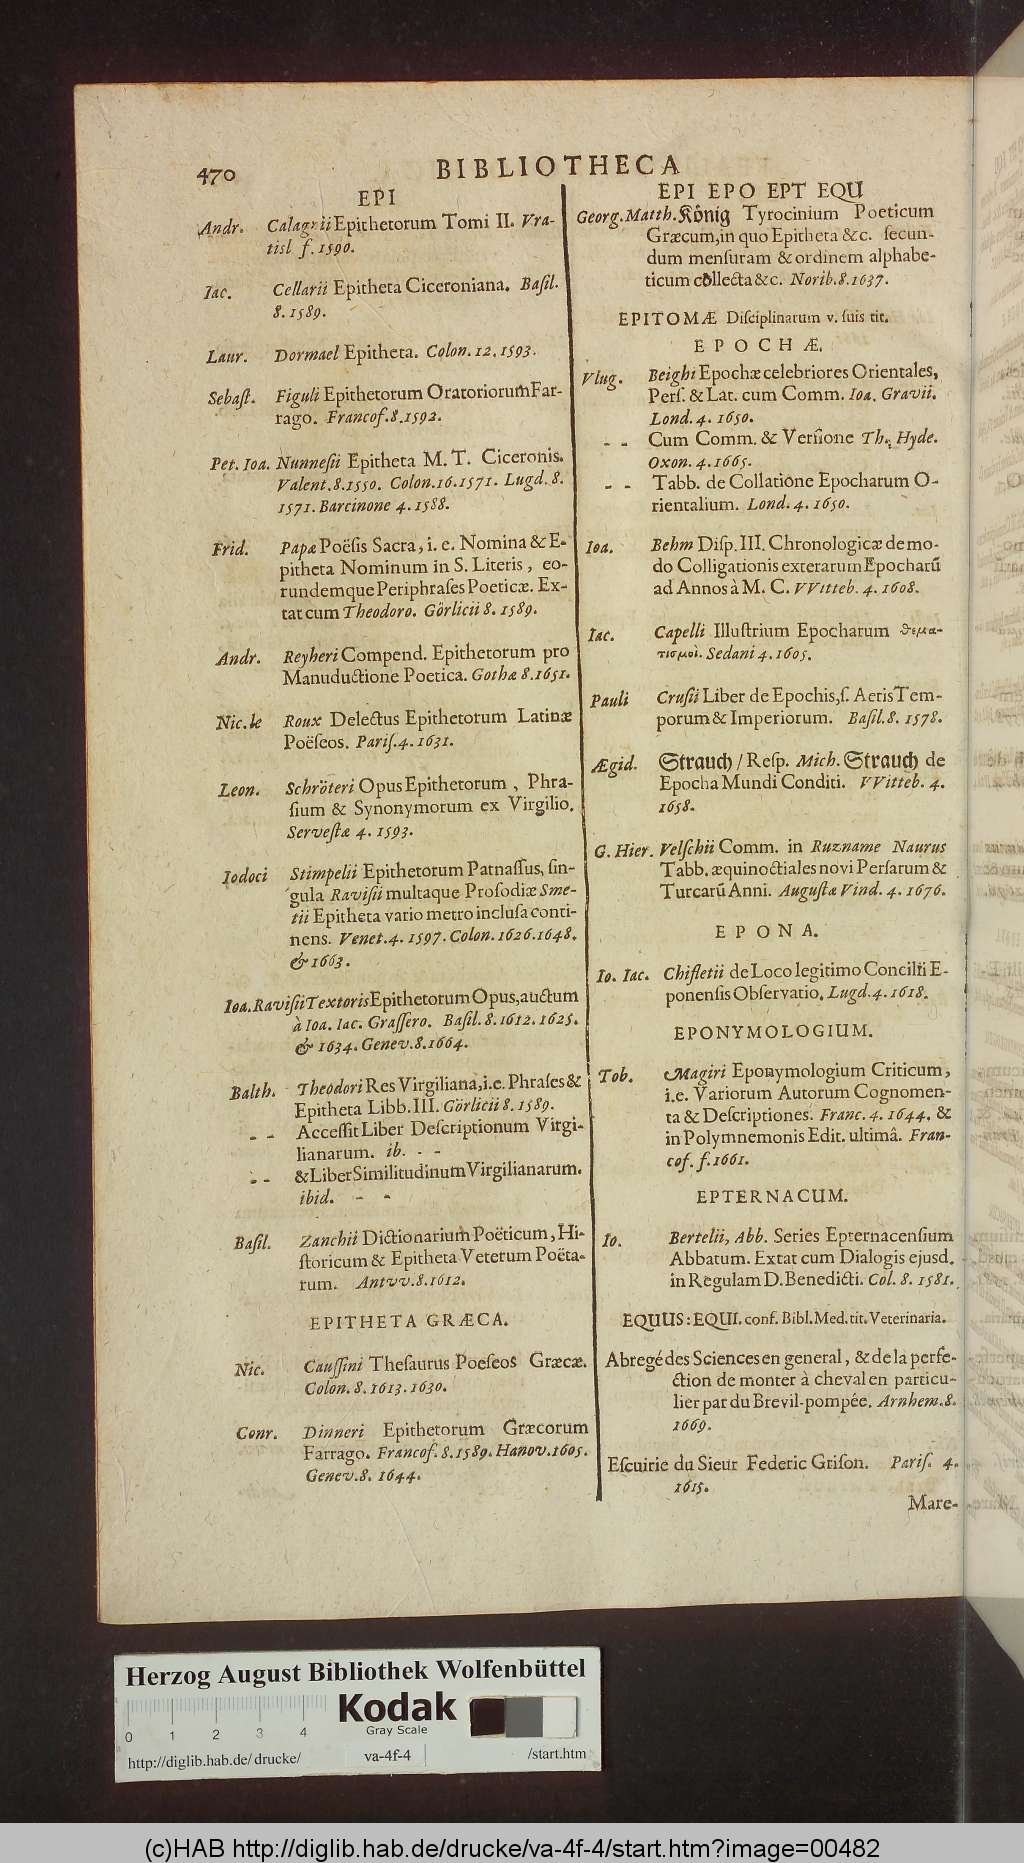 470
BIBLIOTHECA
EPI
Andr. Calagrii Epithetorum Tomi II. Vra-
tisl f. 1590.
Iac. Cellarii Epitheta Ciceroniana. Basil.
8. 1589.
Laur. Dormael Epitheta. Colon. 12. 1593.
Sebaſt. Figuli Epithetorum Oratoriorum Far-
rago. Francof. 8. 1592.
Pet. Ioa. Nunneſii Epitheta M. T. Ciceronis.
Valent. 8. 1550. Colon. 16. 1571. Lugd. 8.
1571. Barcinone 4. 1588.
Frid. Papæ Poëſis Sacra, i. e. Nomina & E-
pitheta Nominum in S. Literis, eo-
rundemque Periphraſes Poeticæ. Ex-
tat cum Theodoro. Görlicii 8. 1589.
Andr. Reyheri Compend. Epithetorum pro
Manuductione Poetica. Gothæ 8. 1651.
Nic. le Roux Delectus Epithetorum Latinæ
Poëſeos. Pariſ. 4. 1631.
Leon. Schröteri Opus Epithetorum, Phra-
ſium & Synonymorum ex Virgilio.
Serveſtæ 4. 1593.
Iodoci Stimpelii Epithetorum Parnaſſus, ſin-
gula Raviſii multaque Proſodiæ Sme-
tii Epitheta vario metro incluſa conti-
nens. Venet. 4. 1597. Colon. 1626. 1648.
& 1663.
Ioa. Raviſii Textoris Epithetorum Opus, auctum
à Ioa. Iac. Graſſero. Baſil. 8. 1612. 1625.
& 1634. Genev. 8. 1664.
Balth. Theodori Res Virgiliana, i.e. Phraſes &
Epitheta Libb. III. Görlicii 8. 1589.
- - Acceſſit Liber Deſcriptionum Virgi-
lianarum. ib. - -
- - & Liber Similitudinum Virgilianarum.
ibid. - -
Baſil. Zanchii Dictionarium Poëticum, Hi-
ſtoricum & Epitheta Veterum Poëta-
rum. Antvv. 8. 1612.
EPITHETA GRÆCA.
Nic. Cauſſini Theſaurus Poeſeos Græcæ.
Colon. 8. 1613. 1630.
Conr. Dinneri Epithetorum Græcorum
Farrago. Francof. 8. 1589. Hanov. 1605.
Genev. 8. 1644.
EPI EPO EPT EQU
Georg. Matth. König Tyrocinium Poeticum
Græcum, in quo Epitheta &c. ſecun-
dum menſuram & ordinem alphabe-
ticum collecta &c. Norib. 8. 1637.
EPITOMÆ Diſciplinarum v. ſuis tit.
EPOCHÆ.
Vlug. Beighi Epochæ celebriores Orientales,
Perſ. & Lat. cum Comm. Ioa. Gravii.
Lond. 4. 1650.
- - Cum Comm. & Verſione Th. Hyde.
Oxon. 4. 1665.
- - Tabb. de Collatione Epocharum O-
rientalium. Lond. 4. 1650.
Ioa. Behm Diſp. III. Chronologicæ de mo-
do Colligationis exterarum Epocharũ
ad Annos à M. C. VVitteb. 4. 1608.
Iac. Capelli Illuſtrium Epocharum θεμα-
τισμοὶ. Sedani 4. 1605.
Pauli Cruſii Liber de Epochis, ſ. Aeris Tem-
porum & Imperiorum. Baſil. 8. 1578.
Ægid. Strauch / Reſp. Mich. Strauch de
Epocha Mundi Conditi. VVitteb. 4.
1658.
G. Hier. Velſchii Comm. in Ruzname Naurus
Tabb. æquinoctiales novi Perſarum &
Turcarũ Anni. Auguſtæ Vind. 4. 1676.
EPONA.
Io. Iac. Chifletii de Loco legitimo Concilii E-
ponenſis Obſervatio. Lugd. 4. 1618.
EPONYMOLOGIUM.
Tob. Magiri Eponymologium Criticum,
i.e. Variorum Autorum Cognomen-
ta & Deſcriptiones. Franc. 4. 1644. &
in Polymnemonis Edit. ultimâ. Fran-
cof. f. 1661.
EPTERNACUM.
Io. Bertelii, Abb. Series Epternacenſium
Abbatum. Extat cum Dialogis ejusd.
in Regulam D. Benedicti. Col. 8. 1581.
EQUUS: EQUI. conf. Bibl. Med. tit. Veterinaria.
Abregé des Sciences en general, & de la perfe-
ction de monter à cheval en particu-
lier par du Brevil-pompée. Arnhem. 8.
1669.
Eſcuirie du Sieur Federic Griſon. Pariſ. 4.
1615.
Mare-
Herzog August Bibliothek Wolfenbüttel
Kodak
Gray Scale
0 1 2 3 4
http://diglib.hab.de/drucke/ va-4f-4 /start.htm
(c)HAB http://diglib.hab.de/drucke/va-4f-4/start.htm?image=00482